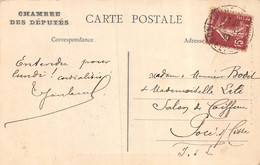 CHAMBRE
DES DÉPUTÉS
CARTE POSTALE
Correspondance
Adresse
Entendu pour
lundi! cordialité
Madame & Monsieur Bodet
& Mademoiselle Lile
Salon de Coiffure
Pocé s/ Cisse
I. & L.